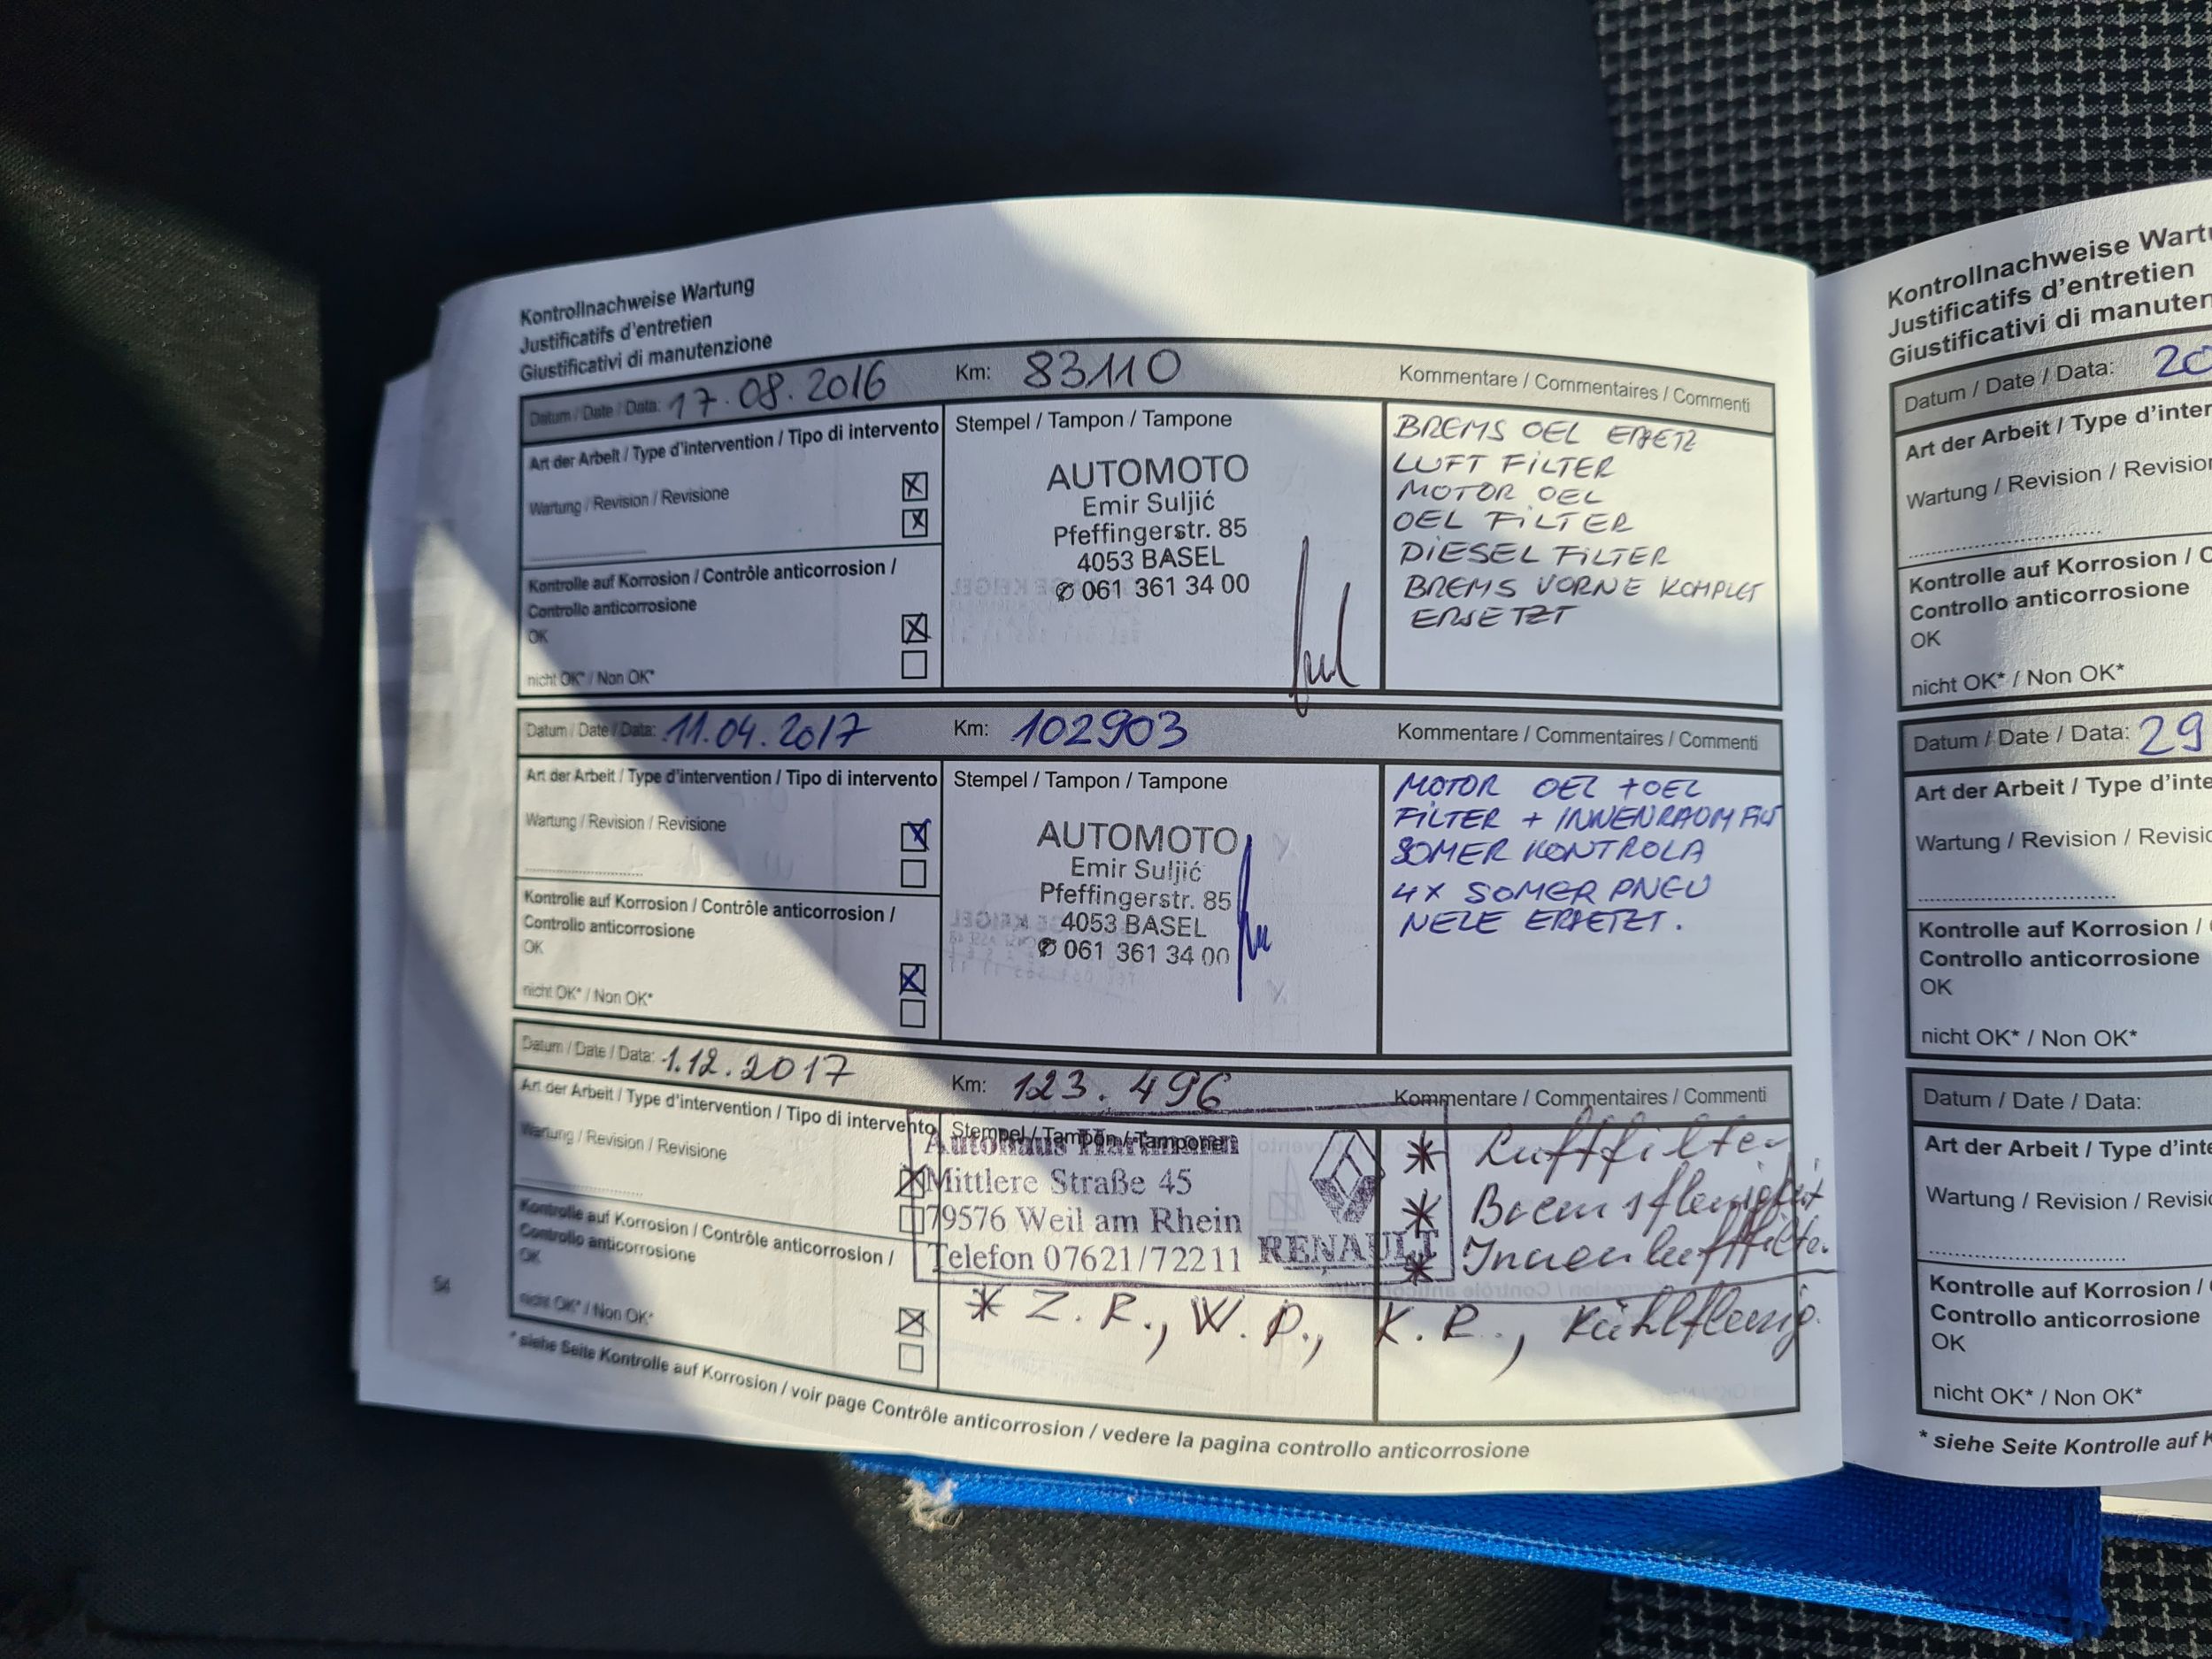 Kontrollnachweise Wartung
Justificatifs d'entretien
Giustificativi di manutenzione
Datum / Date / Data: 17.08.2016 Km: 83110 Kommentare / Commentaires / Commenti
Art der Arbeit / Type d'intervention / Tipo di intervento
Wartung / Revision / Revisione
Kontrolle auf Korrosion / Contrôle anticorrosion /
Controllo anticorrosione
OK
nicht OK* / Non OK*
Stempel / Tampon / Tampone
AUTOMOTO
Emir Suljić
Pfeffingerstr. 85
4053 BASEL
✆ 061 361 34 00
BREMS OEL
LUFT FILTER
MOTOR OEL
OEL FILTER
DIESEL FILTER
BREMS VORNE KOMPLET
ERSETZT
Datum / Date / Data: 11.04.2017 Km: 102903 Kommentare / Commentaires / Commenti
Art der Arbeit / Type d'intervention / Tipo di intervento
Wartung / Revision / Revisione
Kontrolle auf Korrosion / Contrôle anticorrosion /
Controllo anticorrosione
OK
nicht OK* / Non OK*
Stempel / Tampon / Tampone
AUTOMOTO
Emir Suljić
Pfeffingerstr. 85
4053 BASEL
✆ 061 361 34 00
MOTOR OEL + OEL
FILTER + INNENRAUM
SOMER KONTROLA
4X SOMER PNEU
ERSETZT.
Datum / Date / Data: 1.12.2017 Km: 123.496 Kommentare / Commentaires / Commenti
Art der Arbeit / Type d'intervention / Tipo di intervento
Wartung / Revision / Revisione
Kontrolle auf Korrosion / Contrôle anticorrosion /
Controllo anticorrosione
OK
nicht OK* / Non OK*
Stempel / Tampon / Tampone
Autohaus Hartmann
Mittlere Straße 45
79576 Weil am Rhein
Telefon 07621/72211
RENAULT
* Luftfilter
* Bremsflüssigkeit
* Innenluftfilter
* Z.R., W.P., K.R., Kühlflüssig.
54
* siehe Seite Kontrolle auf Korrosion / voir page Contrôle anticorrosion / vedere la pagina controllo anticorrosione
Kontrollnachweise
Justificatifs d'entretien
Giustificativi di
Datum / Date / Data: 20
Art der Arbeit / Type
Wartung / Revision /
Kontrolle auf Korrosion /
Controllo anticorrosione
OK
nicht OK* / Non OK*
Datum / Date / Data: 29
Art der Arbeit / Type
Wartung / Revision /
Kontrolle auf Korrosion /
Controllo anticorrosione
OK
nicht OK* / Non OK*
Datum / Date / Data:
Art der Arbeit / Type
Wartung / Revision /
Kontrolle auf Korrosion /
Controllo anticorrosione
OK
nicht OK* / Non OK*
* siehe Seite Kontrolle auf